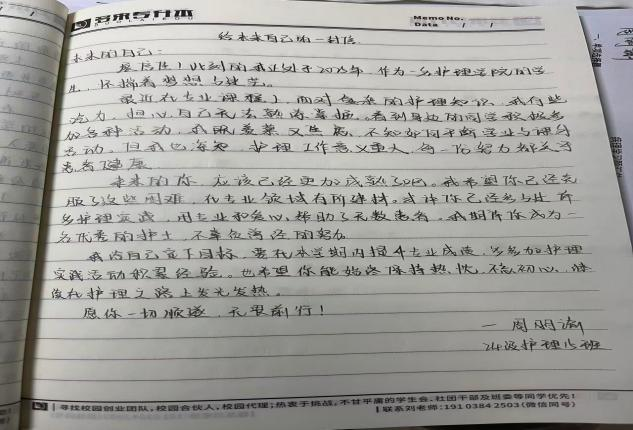 Memo No.
Data / /
给未来自己的一封信
未来的自己:
展信佳!此刻的我正处于2025年,作为一名护理学院的学
生,怀揣着梦想与迷茫。
最近在专业课程上,面对复杂的护理知识,我有些
吃力,担心自己无法熟练掌握。看到身边的同学积极参
加各种活动,我既羡慕又焦虑,不知如何平衡学业与课外
活动。但我也深知,护理工作意义重大,每一份努力都关乎
患者健康。
未来的你,应该已经更加成熟了吧。我希望你已经克
服了这些困难,在专业领域有所建树。或许你已经参与过许
多护理实践,用专业和爱心,帮助了无数患者。我期待你成为一
名优秀的护士,不辜负曾经的努力。
我给自己定下目标,要在本学期内提升专业成绩,多参加护理
实践活动积累经验。也希望你能始终保持热忱,不忘初心,继
续在护理之路上发光发热。
愿你一切顺遂,无畏前行!
一周明
24级护理15班
寻找校园创业团队,校园合伙人,校园代理;热衷于挑战,不甘平庸的学生会、社团干部及班委等同学优先!
联系刘老师:191 0384 2503(微信同号)